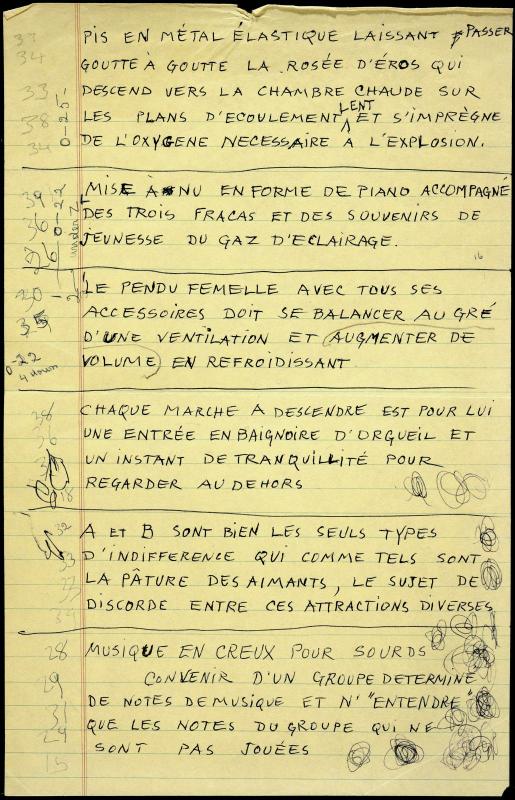 PIS EN MÉTAL ÉLASTIQUE LAISSANT PASSER
GOUTTE À GOUTTE LA ROSÉE D'ÉROS QUI
DESCEND VERS LA CHAMBRE CHAUDE SUR
LES PLANS D'ECOULEMENT LENT ET S'IMPRÈGNE
DE L'OXYGENE NECESSAIRE A L'EXPLOSION.
MISE À NU EN FORME DE PIANO ACCOMPAGNÉ
DES TROIS FRACAS ET DES SOUVENIRS DE
JEUNESSE DU GAZ D'ECLAIRAGE.
16
LE PENDU FEMELLE AVEC TOUS SES
ACCESSOIRES DOIT SE BALANCER AU GRÉ
D'UNE VENTILATION ET AUGMENTER DE
VOLUME EN REFROIDISSANT
CHAQUE MARCHE A DESCENDRE EST POUR LUI
UNE ENTRÉE EN BAIGNOIRE D'ORGUEIL ET
UN INSTANT DE TRANQUILLITÉ POUR
REGARDER AU DEHORS
A ET B SONT BIEN LES SEULS TYPES
D'INDIFFERENCE QUI COMME TELS SONT
LA PÂTURE DES AIMANTS, LE SUJET DE
DISCORDE ENTRE CES ATTRACTIONS DIVERSES
MUSIQUE EN CREUX POUR SOURDS
CONVENIR D'UN GROUPE DETERMINÉ
DE NOTES DE MUSIQUE ET N' "ENTENDRE"
QUE LES NOTES DU GROUPE QUI NE
SONT PAS JOUÉES
33
34
33
38
34
0-25-
39
36
0-22
0-22
4 down
32
33
28
29
31
29
15